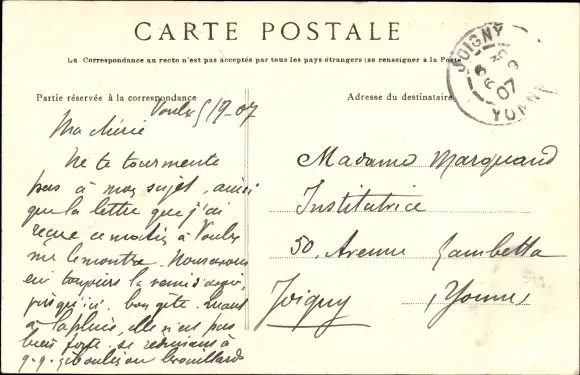 CARTE POSTALE
La Correspondance au recto n'est pas acceptée par tous les pays étrangers (se renseigner à la Poste
Partie réservée à la correspondance
Adresse du destinataire
JOIGNY
07
YONNE
5/9-07
Ma chérie
Ne te tourmente
pas à mon sujet, ainsi
que la lettre que j'ai
reçue ce matin à
me le montre. Nous avons
eu toujours la
jusqu'ici. bon gîte. Quant
à la pluie, elle n'est pas
bien forte. se réduisant à
q.q. giboulées ou brouillards
Madame Marquand
Institutrice
50, Avenue Gambetta
Joigny (Yonne)